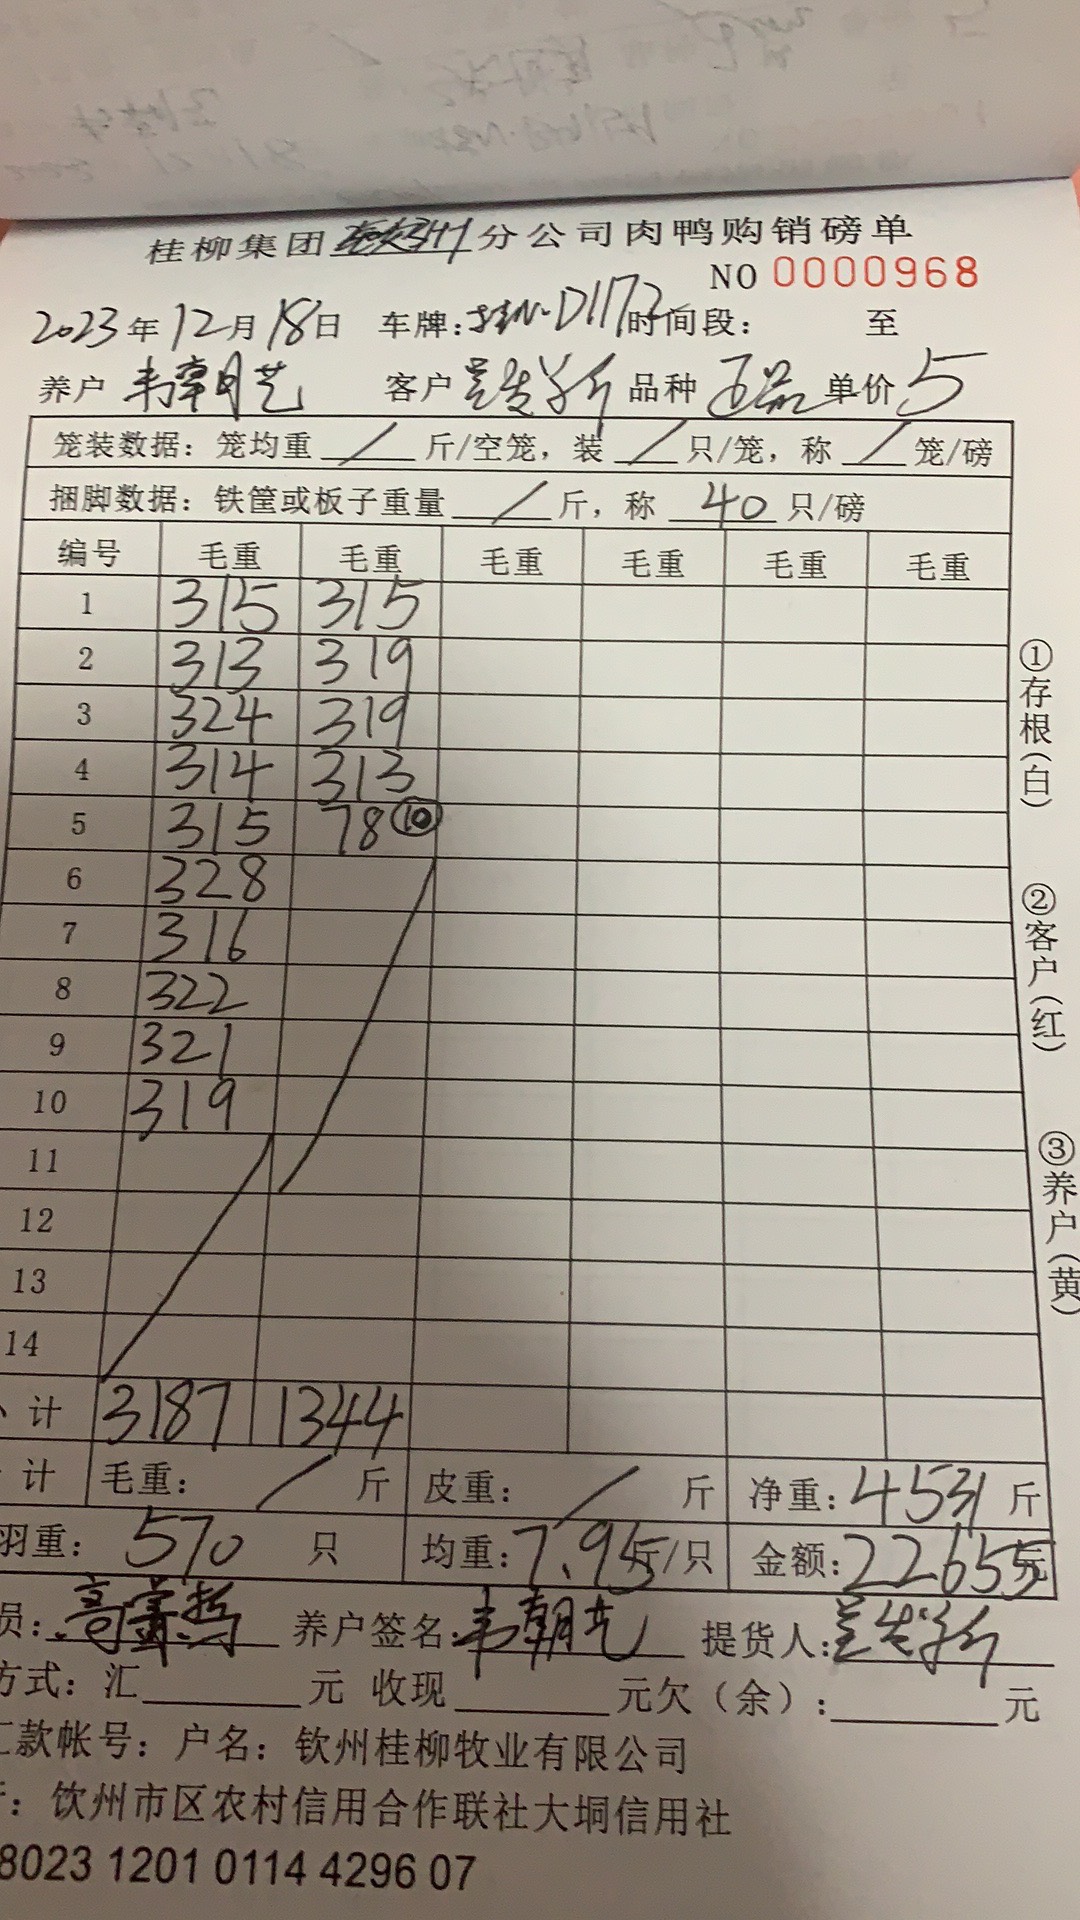 桂柳集团 分公司肉鸭购销磅单
NO 0000968
2023年12月18日 车牌:桂N·D1172 时间段: 至
养户 韦朝艺 客户 品种 单价 5
笼装数据: 笼均重 / 斤/空笼, 装 / 只/笼, 称 / 笼/磅
捆脚数据: 铁筐或板子重量 / 斤, 称 40 只/磅
编号 毛重 毛重 毛重 毛重 毛重 毛重
1 315 315
2 313 319
3 324 319
4 314 313
5 315 78 ⑩
6 328
7 316
8 322
9 321
10 319
11
12
13
14
计 3187 1344
计 毛重: / 斤 皮重: / 斤 净重: 4531 斤
羽重: 570 只 均重: 7.95 斤/只 金额: 22655 元
员: 养户签名: 韦朝艺 提货人:
方式: 汇 元 收现 元 欠(余): 元
汇款帐号: 户名: 钦州桂柳牧业有限公司
: 钦州市区农村信用合作联社大垌信用社
8023 1201 0114 4296 07
①存根(白)
②客户(红)
③养户(黄)